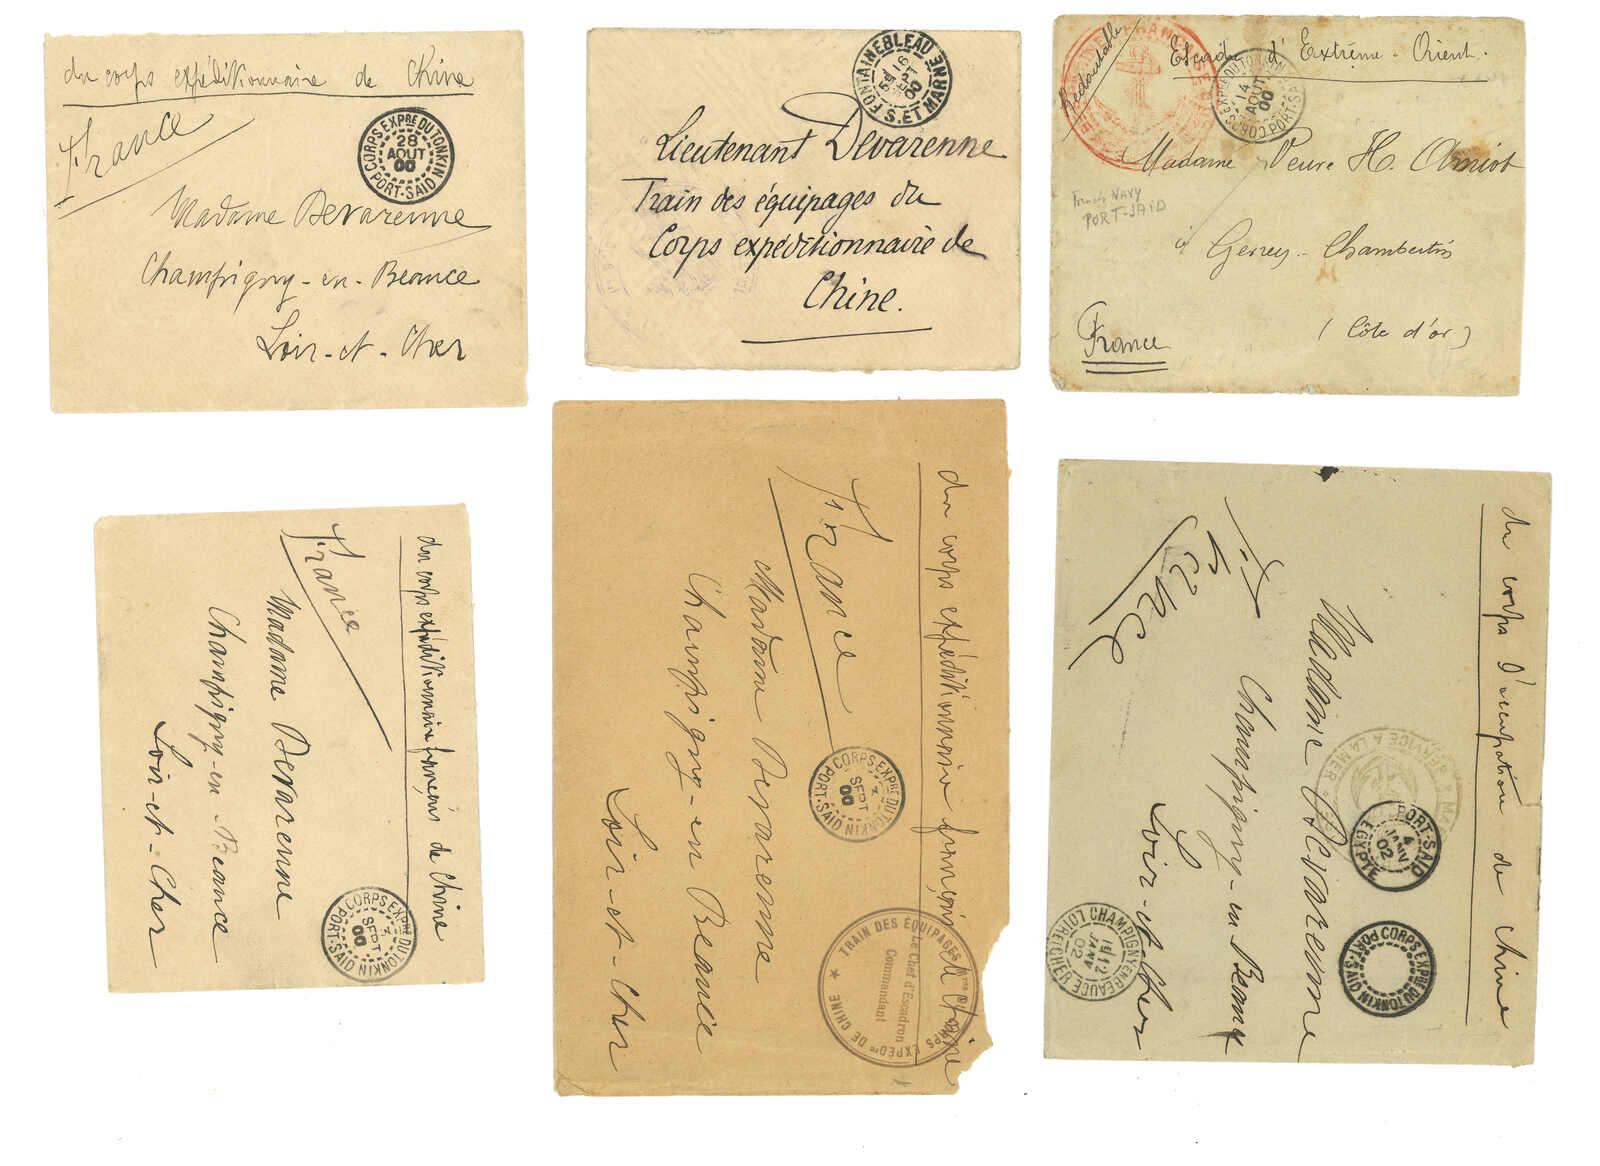 du corps expéditionnaire de Chine
France
CORPS EXPRE DU TONKIN
28
AOUT
00
PORT-SAID
Madame Devarenne
Champigny-en-Beauce
Loir-et-Cher
FONTAINEBLEAU
16
SEPT
00
S. ET MARNE
Lieutenant Devarenne
Train des équipages du
Corps expéditionnaire de
Chine.
Escadre d'Extrême-Orient.
Redoutable
CORPS EXPRE DU TONKIN
14
AOUT
00
PORT-SAID
Madame Veuve H. Amiot
French NAVY
PORT-SAID
à Gevrey-Chambertin
(Côte d'or)
France
du corps expéditionnaire français de Chine
France
Madame Devarenne
Champigny-en Beauce
Loir-et-Cher
CORPS EXPRE DU TONKIN
3
SEPT
00
PORT-SAID
du corps expéditionnaire français de Chine
France
Madame Devarenne
Champigny-en Beauce
Loir-et-Cher
CORPS EXPRE DU TONKIN
3
SEPT
00
PORT-SAID
TRAIN DES ÉQUIPAGES
CORPS EXPÉDre DE CHINE
Le Chef d'Escadron
Commandant
du corps d'occupation de Chine
France
Madame Devarenne
Champigny-en Beauce
Loir-et-Cher
SERVICE A LA MER
PORT-SAID
4
JANV
02
EGYPTE
CORPS EXPRE DU TONKIN
PORT-SAID
CHAMPIGNY EN BEAUCE
12
JANV
02
LOIR ET CHER